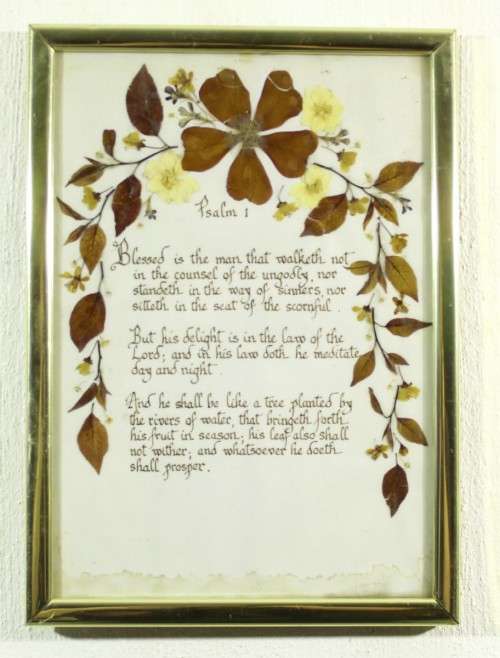 Psalm 1
Blessed is the man that walketh not
in the counsel of the ungodly, nor
standeth in the way of sinners, nor
sitteth in the seat of the scornful.
But his delight is in the law of the
Lord; and in his law doth he meditate
day and night.
And he shall be like a tree planted by
the rivers of water, that bringeth forth
his fruit in season; his leaf also shall
not wither; and whatsoever he doeth
shall prosper.